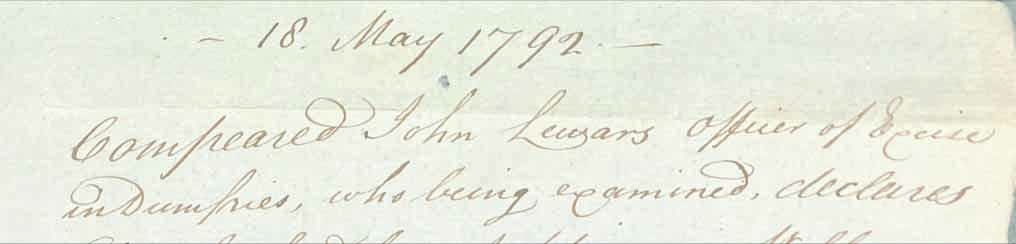 - 18. May 1792. -
Compeared John Lewars Officer of Excise
in Dumfries, who being examined, declares